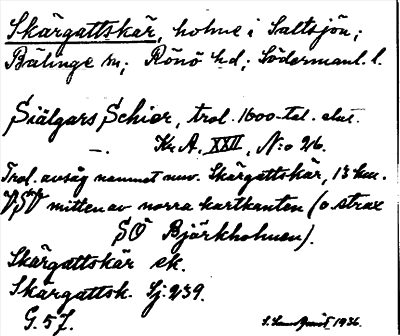 Skärgattskär, holme i Saltsjön;
Bälinge sn; Rönö hd; Södermanl. l.
Siälgars Schior, trol. 1600-tal. slut.
—. Kr. A. XXII, N:o 26.
Trol. avsåg namnet nuv. Skärgattskär, 13 km.
VSV mitten av norra kartkanten (o strax
SO Björkholmen).
Skärgattskär ek.
Skärgattsk. Sj. 239.
G. 57.
1936.